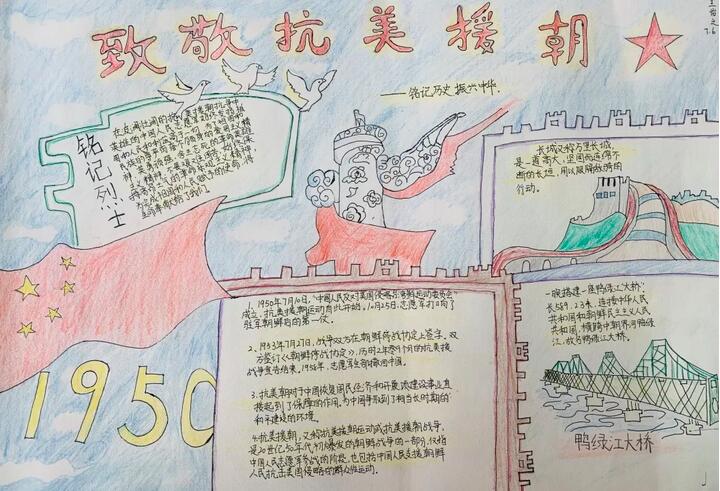 致敬抗美援朝
——铭记历史 振兴中华.
7.6
铭记烈士
在波澜壮阔的抗美援朝战争中
英雄的中国人民志愿军始终发扬
祖国和人民利益高于一切、为了祖国和
民族的尊严而奋不顾身的爱国主义精
长城又称万里长城,
是一道高大、坚固而连绵不
断的长垣,用以限隔敌骑的
行动。
1、1950年7月10日,“中国人民反对美国侵略台湾朝鲜运动委员会
成立,抗美援朝运动自此开始。10月25日,志愿军打响了
赴朝后的第一仗。
2、1953年7月27日,战争双方在朝鲜停战协定上签字。双
方签订《朝鲜停战协定》,历时2年零9个月的抗美援
战争宣告结束。1958年,志愿军全部撤回中国。
3、抗美援朝对于中国恢复国民经济和开展 建设事业直
接起到了保障的作用,为中国争取到了相当长时期的
和平建设的环境。
4、抗美援朝,又称抗美援朝运动或抗美援朝战争,
是20世纪50年代初爆发的朝鲜战争的一部分,仅指
中国人民志愿军参战的阶段,也包括中国人民支援朝鲜
人民抗击美国侵略的群众性运动。
一般搭建一座鸭绿江大桥
长559.23米,连接中华人民
共和国和朝鲜民主主义人民
共和国,横跨中朝界河鸭绿
江,故名鸭绿江大桥。
鸭绿江大桥
1950